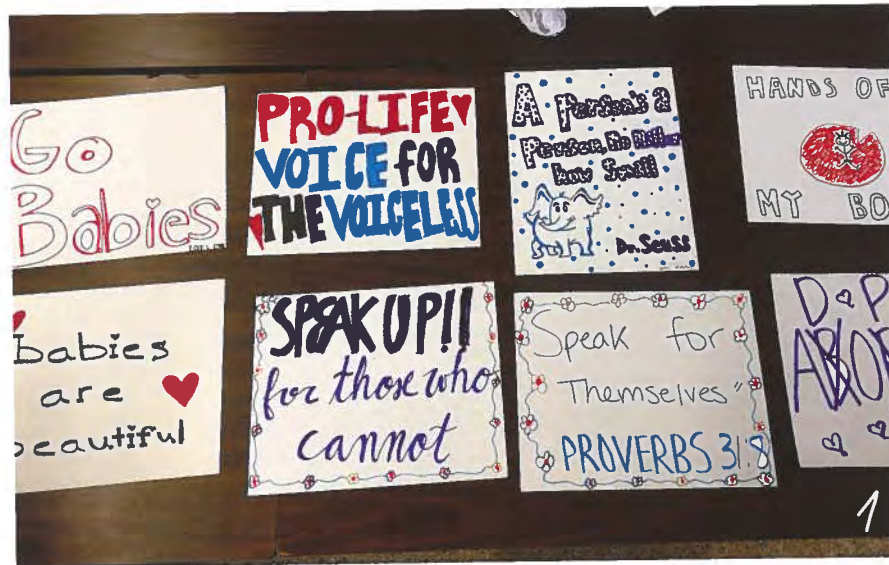 Go
Babies
PRO-LIFE
VOICE FOR
THE VOICELESS
A Person's a
Person No Matter
how Small
Dr. Seuss
HANDS OF
MY BO
babies
are
beautiful
SPEAK UP!!
for those who
cannot
Speak for
Themselves"
PROVERBS 31:8
1